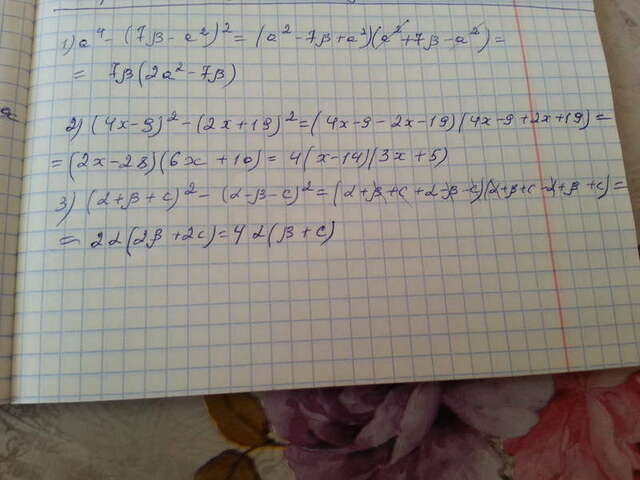 1) a⁴ - (7β - a²)² = (a² - 7β + a²)(a² + 7β - a²) =
= 7β(2a² - 7β)
2) (4x - 9)² - (2x + 19)² = (4x - 9 - 2x - 19)(4x - 9 + 2x + 19) =
= (2x - 28)(6x + 10) = 4(x - 14)(3x + 5)
3) (α + β + c)² - (α - β - c)² = (α + β + c + α - β - c)(α + β + c - α + β + c) =
= 2α(2β + 2c) = 4α(β + c)